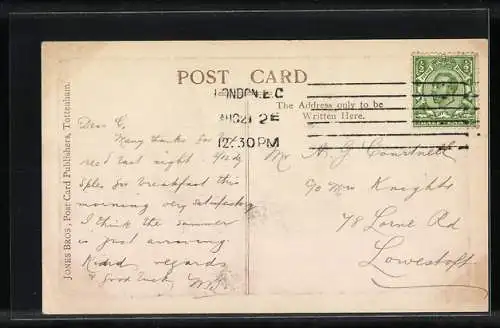 POST CARD
LONDON. E.C
AUG 21 12
12.30 PM
The Address only to be
Written Here.
JONES BROS., Post Card Publishers, Tottenham.
Dear C,
Many thanks for
recd last night.
for breakfast this
morning very satisfactory
I think the summer
is just arriving.
Kind regards
& good luck
Mr A. J. Courtnell
c/o Mrs Knights
78 Lorne Rd
Lowestoft